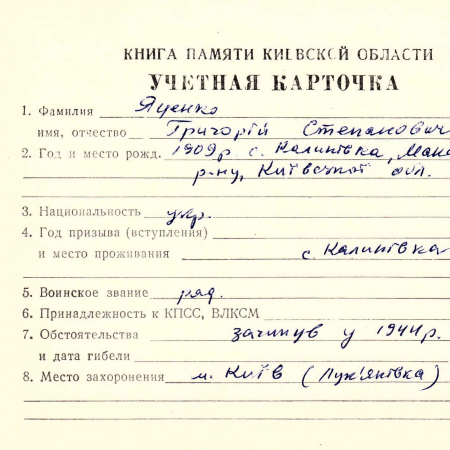 КНИГА ПАМЯТИ КИЕВСКОЙ ОБЛАСТИ
УЧЕТНАЯ КАРТОЧКА
1. Фамилия Яценко
имя, отчество Григорій Степанович
2. Год и место рожд. 1909р с. Калинівка, Мака
р-ну, Київської обл.
3. Национальность укр.
4. Год призыва (вступления)
и место проживания с. Калинівка
5. Воинское звание ряд.
6. Принадлежность к КПСС, ВЛКСМ
7. Обстоятельства загинув у 1944р.
и дата гибели
8. Место захоронения м. Київ (Лук'янівка)